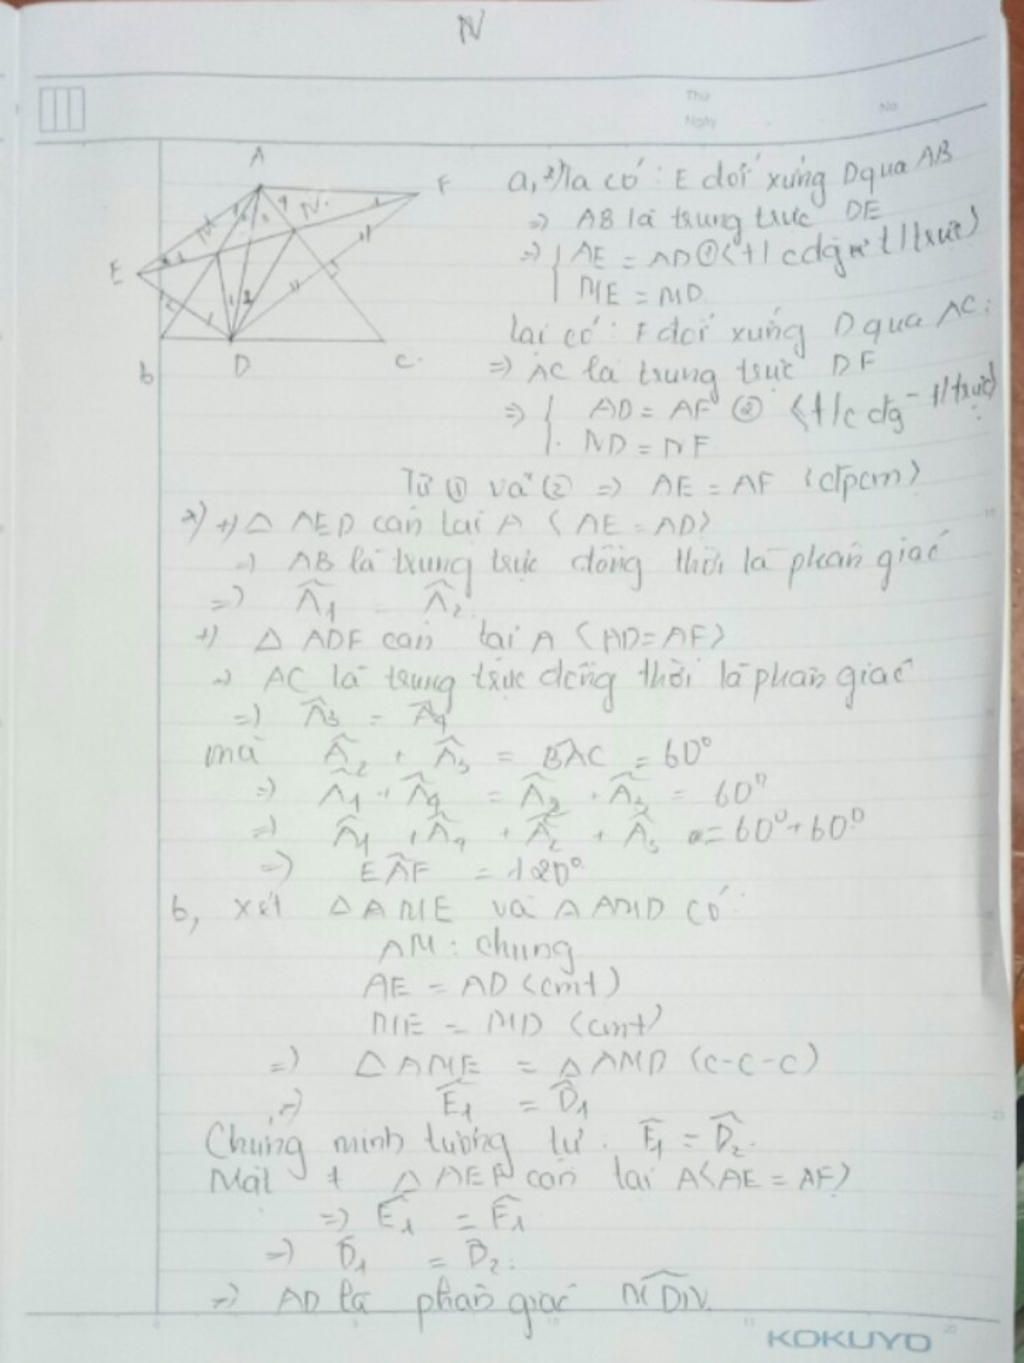 N
Thứ
Ngày
No
A
F
E
M
N
B
D
C
a, *) Ta có : E đối xứng D qua AB
=> AB là trung trực DE
=> { AE = AD ① <t/c đg t/trực>
ME = MD
Lại có : F đối xứng D qua AC :
=> AC là trung trực DF
=> { AD = AF ② <t/c đg t/trực>
ND = NF
Từ ① và ② => AE = AF (đpcm)
*) +) △ AED cân tại A < AE = AD>
=> AB là trung trực đồng thời là phân giác
=> Â1 = Â2
+) △ ADF cân tại A <AD=AF>
=> AC là trung trực đồng thời là phân giác
=> Â3 = Â4
mà Â2 + Â3 = BÂC = 60°
=> Â1 + Â4 = Â2 + Â3 = 60°
=> Â1 + Â4 + Â2 + Â3 = 60° + 60°
=> EÂF = 120°
b, xét △ AME và △ AMD có :
AM : chung
AE = AD (cmt)
ME = MD (cmt)
=> △ AME = △ AMD (c-c-c)
=> Ê1 = D̂1
Chứng minh tương tự : F̂1 = D̂2.
Mặt ≠ △ AEF cân tại A <AE = AF>
=> Ê1 = F̂1
=> D̂1 = D̂2.
=> AD là phân giác MD̂N.
KOKUYO